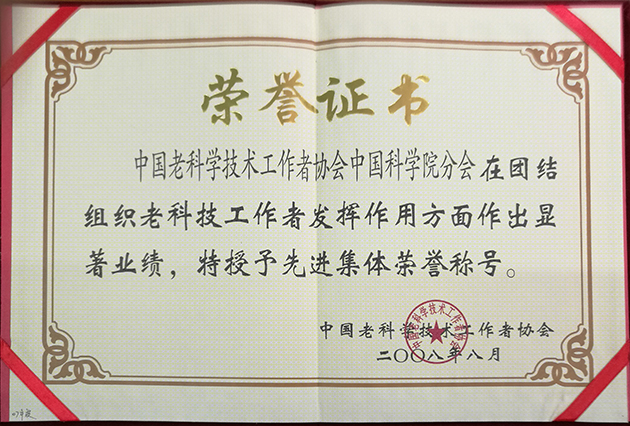 荣誉证书
中国老科学技术工作者协会中国科学院分会在团结
组织老科技工作者发挥作用方面作出显
著业绩，特授予先进集体荣誉称号。
中国老科学技术工作者协会
中国老科学技术工作者协会
二〇〇八年八月